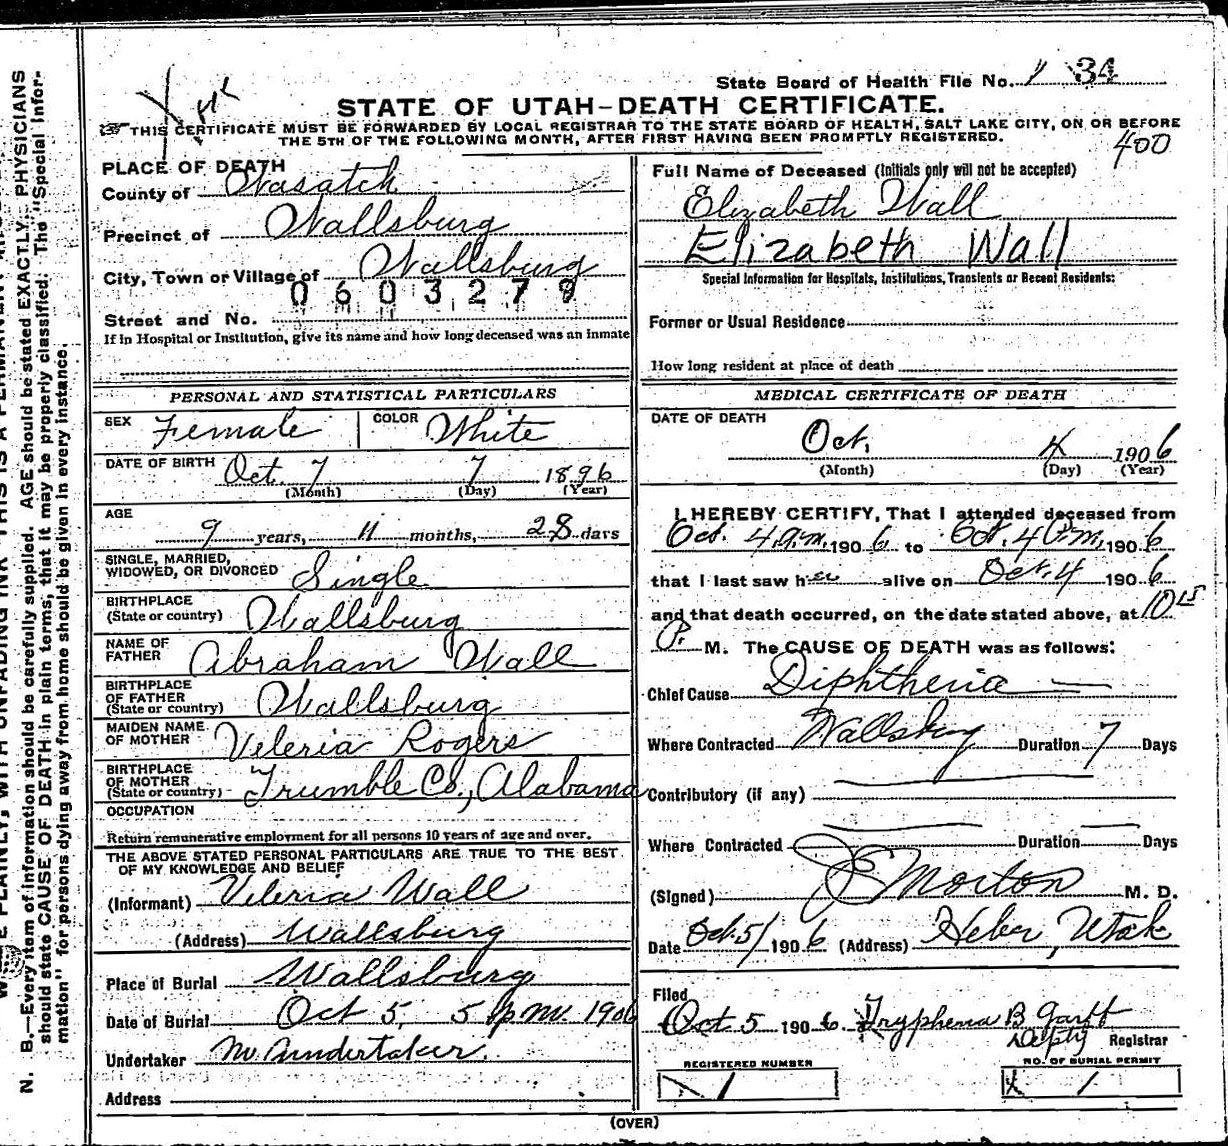 State Board of Health File No. 34
STATE OF UTAH–DEATH CERTIFICATE.
THIS CERTIFICATE MUST BE FORWARDED BY LOCAL REGISTRAR TO THE STATE BOARD OF HEALTH, SALT LAKE CITY, ON OR BEFORE
THE 5TH OF THE FOLLOWING MONTH, AFTER FIRST HAVING BEEN PROMPTLY REGISTERED.
400
PLACE OF DEATH
County of Wasatch
Precinct of Wallsburg
City, Town or Village of Wallsburg
0603279
Street and No.
If in Hospital or Institution, give its name and how long deceased was an inmate
PERSONAL AND STATISTICAL PARTICULARS
SEX Female COLOR White
DATE OF BIRTH Oct. 7 7 1896
(Month) (Day) (Year)
AGE
9 years, 11 months, 28 days
SINGLE, MARRIED,
WIDOWED, OR DIVORCED Single
BIRTHPLACE
(State or country) Wallsburg
NAME OF
FATHER Abraham Wall
BIRTHPLACE
OF FATHER
(State or country) Wallsburg
MAIDEN NAME
OF MOTHER Veleria Rogers
BIRTHPLACE
OF MOTHER
(State or country) Trumble Co., Alabama
OCCUPATION
Return remunerative employment for all persons 10 years of age and over.
THE ABOVE STATED PERSONAL PARTICULARS ARE TRUE TO THE BEST
OF MY KNOWLEDGE AND BELIEF
(Informant) Veleria Wall
(Address) Wallsburg
Place of Burial Wallsburg
Date of Burial Oct 5, 5 p m. 1906
Undertaker No undertaker.
Address
Full Name of Deceased (Initials only will not be accepted)
Elizabeth Wall
Elizabeth Wall
Special Information for Hospitals, Institutions, Transients or Recent Residents:
Former or Usual Residence
How long resident at place of death
MEDICAL CERTIFICATE OF DEATH
DATE OF DEATH
Oct. 4 1906
(Month) (Day) (Year)
I HEREBY CERTIFY, That I attended deceased from
Oct. 4 a.m. 1906 to Oct. 4 P.m, 1906
that I last saw her alive on Oct. 4 1906
and that death occurred, on the date stated above, at 10 15
P. M. The CAUSE OF DEATH was as follows:
Chief Cause Diphtheria
Where Contracted Wallsburg Duration 7 Days
Contributory (if any)
Where Contracted Duration Days
(Signed) Morton M. D.
Date Oct. 5/ 1906 (Address) Heber, Utah
Filed
Oct 5 1906. Tryphena B Garff
Depty Registrar
REGISTERED NUMBER NO. OF BURIAL PERMIT
1 1
(OVER)
N. B.—Every item of information should be carefully supplied. AGE should be stated EXACTLY. PHYSICIANS
should state CAUSE OF DEATH in plain terms, that it may be properly classified. The "Special Infor-
mation" for persons dying away from home should be given in every instance.